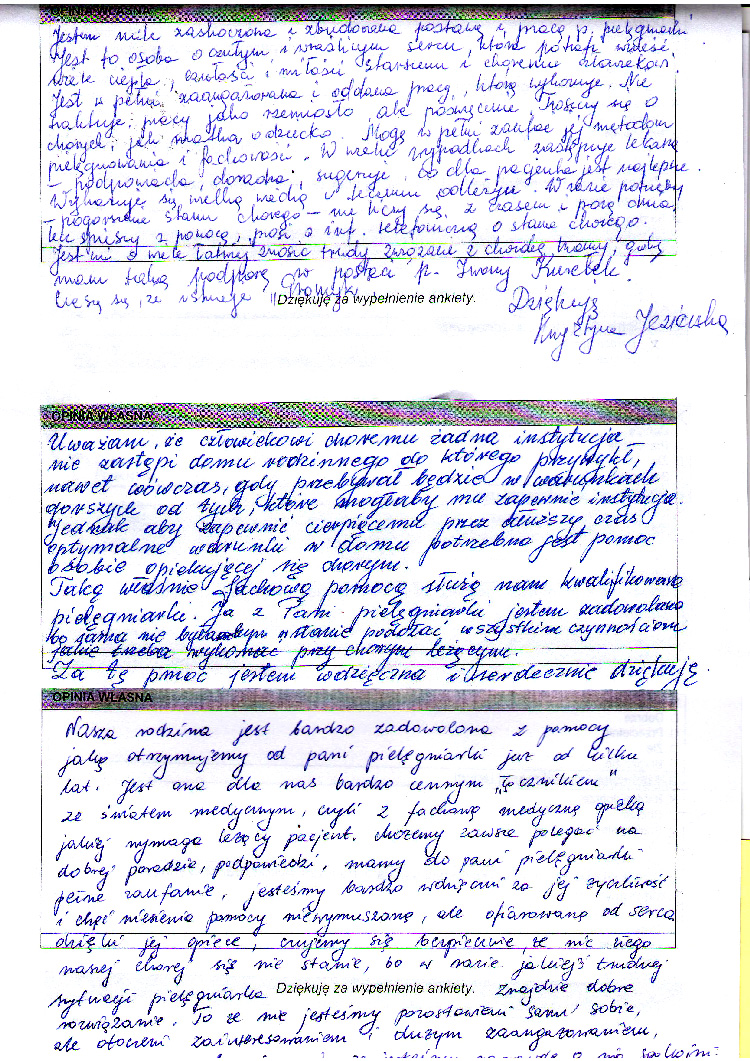 OPINIA WŁASNA
Jestem mile zaskoczona i zbudowana postawą i pracą p. pielęgniarki
Jest to osoba o czułym i wrażliwym sercu, która potrafi wnieść
wiele ciepła, czułości i miłości starszemu i choremu człowiekowi.
Jest w pełni zaangażowana i oddana pracy, którą wykonuje. Nie
traktuje pracy jako rzemiosło, ale poświęcenie. Troszczy się o
chorych, jak matka o dziecko. Mogę w pełni zaufać jej metodom
pielęgnowania i fachowości. W wielu wypadkach zastępuje lekarza
– podpowiada, doradza, sugeruje, co dla pacjenta jest najlepsze.
Wykazuje się wielką wiedzą w leczeniu odleżyn. W razie potrzeby
– pogorszenie stanu chorego – nie liczy się z czasem i porą dnia,
lecz spieszy z pomocą, prosi o inf. telefoniczną o stanie chorego.
Jest mi o wiele łatwiej znosić trudy związane z chorobą mamy, gdy
mam taką podporę w postaci p. Iwony
Cieszę się, że istnieje
Dziękuję za wypełnienie ankiety.
Dziękuję
Krystyna
OPINIA WŁASNA
Uważam, że człowiekowi choremu żadna instytucja
nie zastąpi domu rodzinnego do którego przywykł,
nawet wówczas, gdy przebywał będzie w warunkach
gorszych od tych, które mogłaby mu zapewnić instytucja.
Jednak aby zapewnić cierpiącemu przez dłuższy czas
optymalne warunki w domu potrzebna jest pomoc
osobie opiekującej się chorym.
Taką właśnie fachową pomocą służą nam kwalifikowane
pielęgniarki. Ja z Pani pielęgniarki jestem zadowolona
bo sama nie byłabym w stanie podołać wszystkim czynnościom
jakie trzeba wykonać przy chorym leżącym.
Za tę pmoc jestem wdzięczna i serdecznie dziękuję.
OPINIA WŁASNA
Nasza rodzina jest bardzo zadowolona z pomocy
jaką otrzymujemy od pani pielęgniarki już od kilku
lat. Jest ona dla nas bardzo cennym „łącznikiem"
ze światem medycznym, czyli z fachową medyczną opieką
jakiej wymaga leżący pacjent. Możemy zawsze polegać na
dobrej poradzie, podpowiedzi, mamy do pani pielęgniarki
pełne zaufanie, jesteśmy bardzo wdzięczni za jej życzliwość
i chęć niesienia pomocy niewymuszoną, ale ofiarowaną od serca
dzięki jej opiece, czujemy się bezpiecznie, że nic złego
naszej chorej się nie stanie, bo w razie jakiejś trudnej
sytuacji pielęgniarka znajdzie dobre
Dziękuję za wypełnienie ankiety.
rozwiązanie. To że nie jesteśmy pozostawieni sami sobie,
ale otoczeni zainteresowaniem i dużym zaangażowaniem,